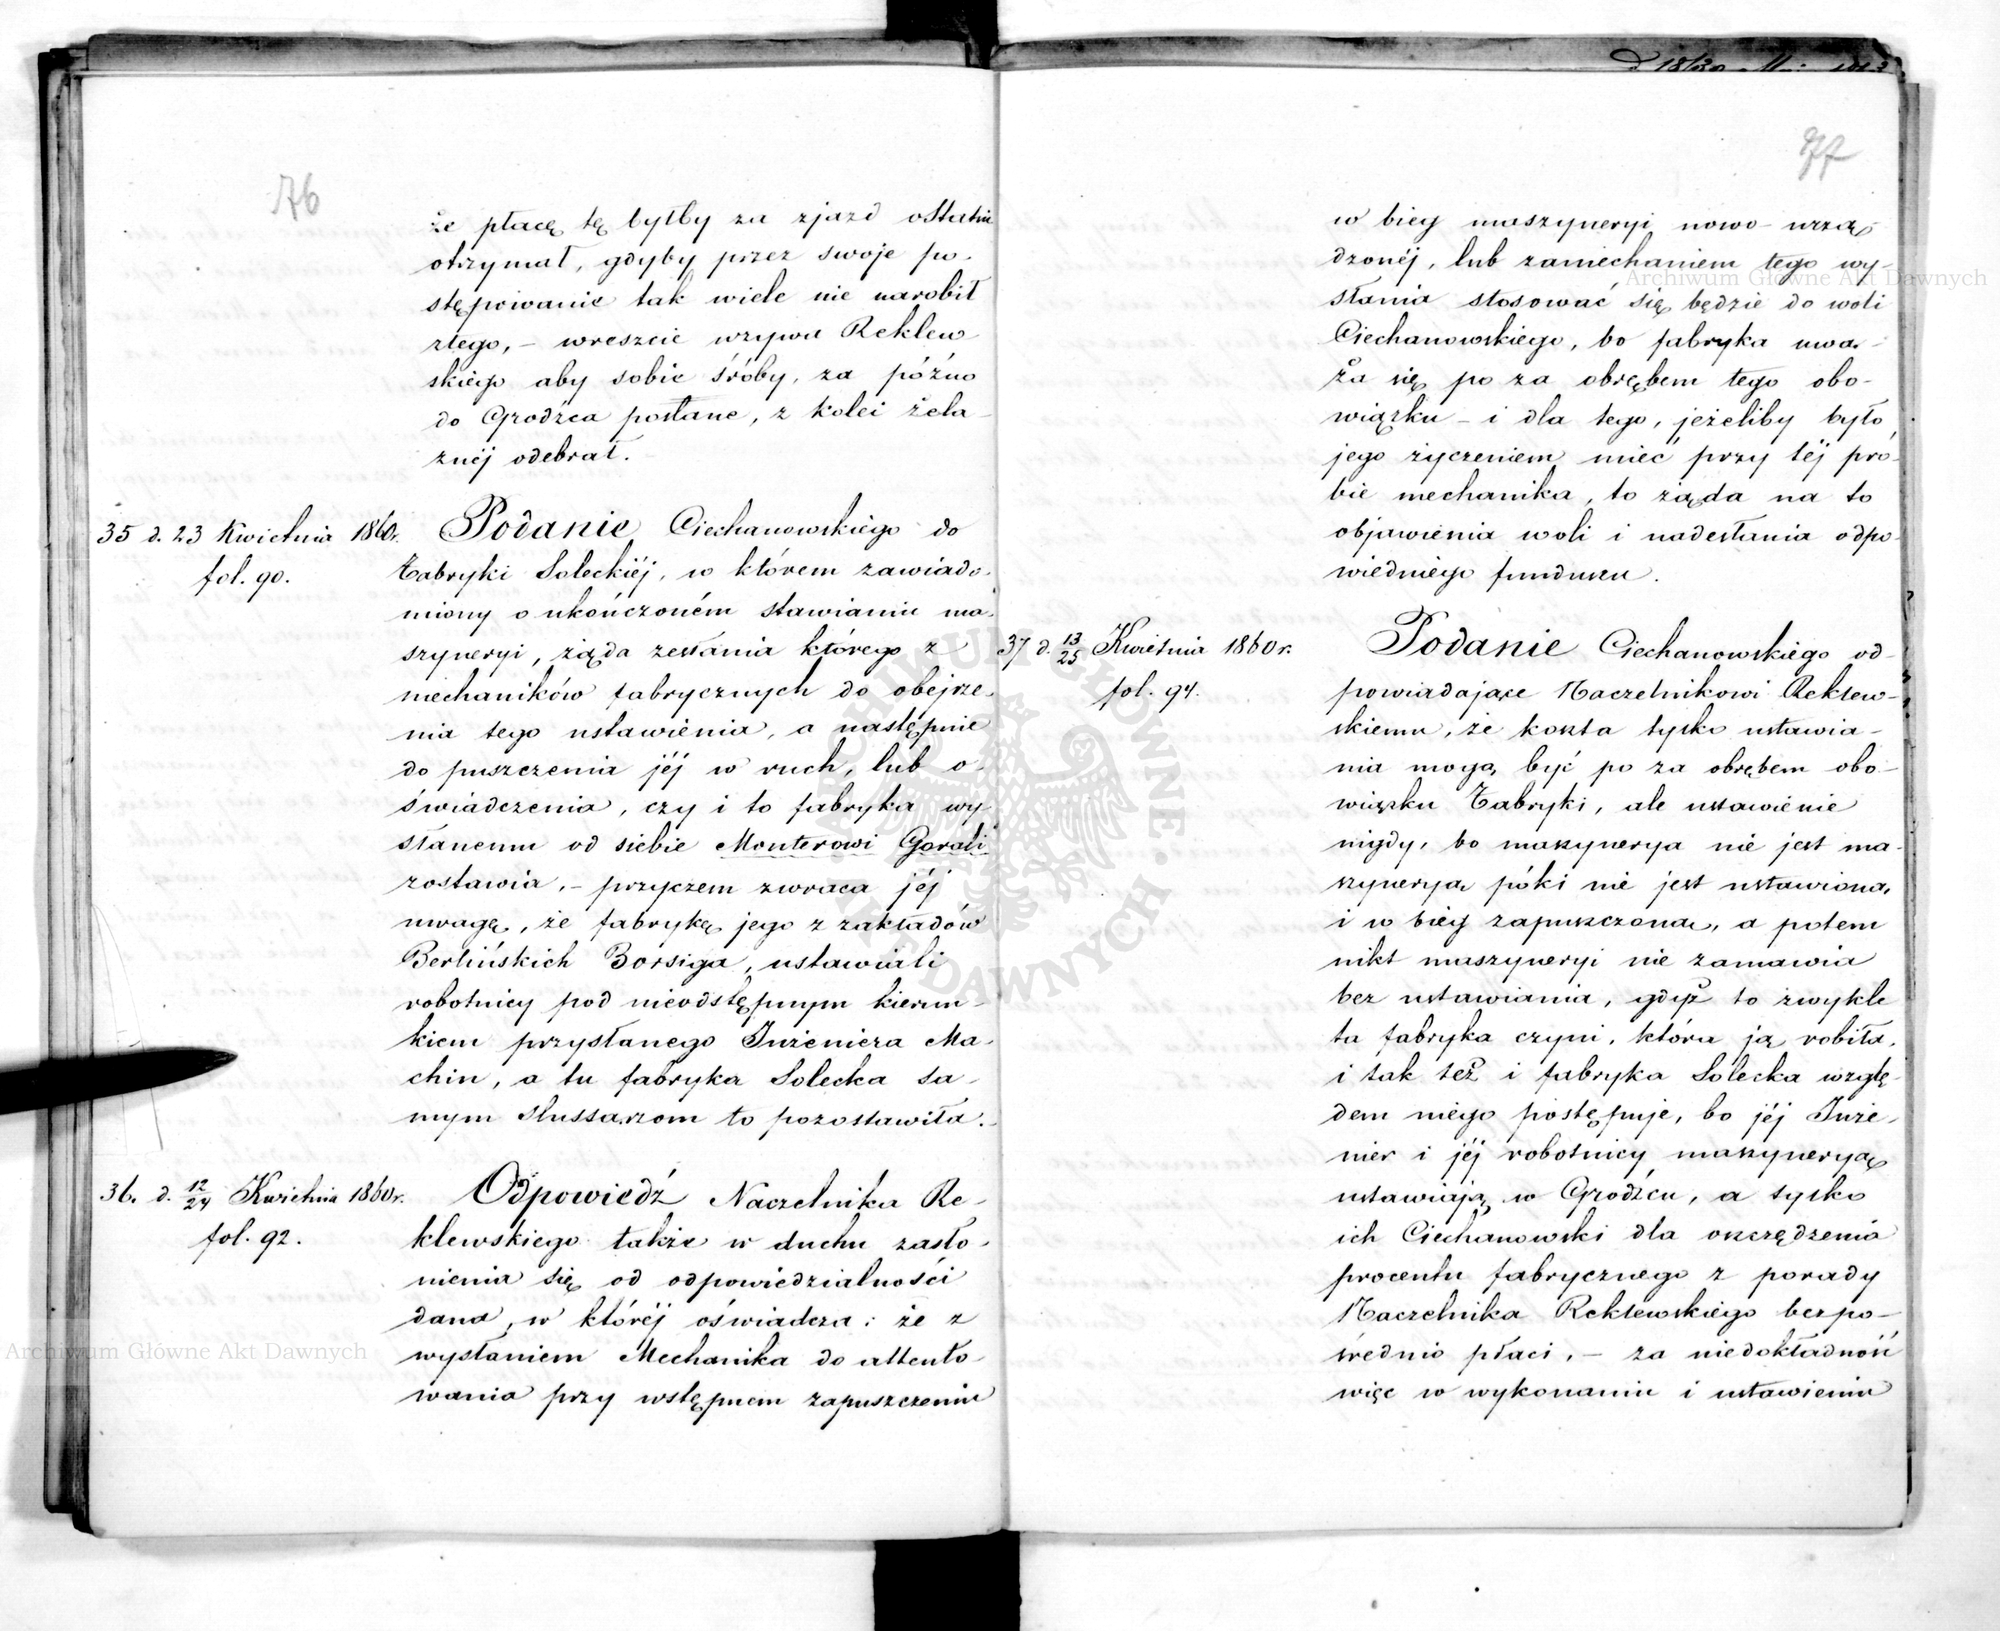 76
że płacę tę byłby za zjazd ostatni
otrzymał, gdyby przez swoje po-
stępowanie tak wiele nie narobił
złego, – wreszcie wzywa Reklew
skiego aby sobie śróby, za późno
do Grodźca posłane, z kolei żela-
znéj odebrał.
35 d. 23 Kwietnia 1860r.
fol. 90.
Podanie Ciechanowskiego do
Fabryki Soleckiéj, w którem zawiado-
miony o ukończoném stawianiu ma-
szyneryi, żąda zesłania którego z
mechaników fabrycznych do obejrze-
nia tego ustawienia, a następnie
do puszczenia jéj w ruch, lub o-
świadczenia, czy i to fabryka wy
słanemu od siebie Monterowi Gorali
zostawia, – przyczem zwraca jéj
uwagę, że fabrykę jego z zakładów
Berlińskich Borsiga, ustawiali
robotnicy pod nieodstępnym kierun-
kiem przysłanego Inżeniera Ma-
chin, a tu fabryka Solecka sa-
mym slussarzom to pozostawiła.
36. d. 12/24 Kwietnia 1860r.
fol. 92.
Odpowiedź Naczelnika Re-
klewskiego także w duchu zasło-
nienia się od odpowiedzialności
dana, w któréj oświadcza: że z
wysłaniem Mechanika do attento-
wania przy wstępnem zapuszczeniu
77
w bieg maszyneryi nowo-urzą-
dzonéj, lub zaniechaniem tego wy-
słania stosować się będzie do woli
Ciechanowskiego, bo fabryka uwa-
ża się po za obrębem tego obo-
wiązku – i dla tego, jeżeliby było
jego życzeniem mieć przy téj pró-
bie mechanika, to żąda na to
objawienia woli i nadesłania odpo-
wiedniego funduszu.
37 d. 13/25 Kwietnia 1860r.
fol. 94.
Podanie Ciechanowskiego od-
powiadające Naczelnikowi Reklew-
skiemu, że koszta tylko ustawia-
nia mogą być po za obrębem obo-
wiązku Fabryki, ale ustawienie
nigdy, bo maszynerya nie jest ma-
szyneryą póki nie jest ustawioną,
i w bieg zapuszczoną, a potem
nikt maszyneryi nie zamawia
bez ustawiania, gdyż to zwykle
ta fabryka czyni, która ją robiła,
i tak też i fabryka Solecka wzglę-
dem niego postępuje, bo jéj Inże-
nier i jéj robotnicy maszyneryę
ustawiają w Grodźcu, a tylko
ich Ciechanowski dla oszczędzenia
procentu fabrycznego z porady
Naczelnika Reklewskiego bezpo-
średnio płaci, – za niedokładność
więc w wykonaniu i ustawieniu
Archiwum Główne Akt Dawnych
Archiwum Główne Akt Dawnych
ARCHIWUM GŁÓWNE AKT DAWNYCH